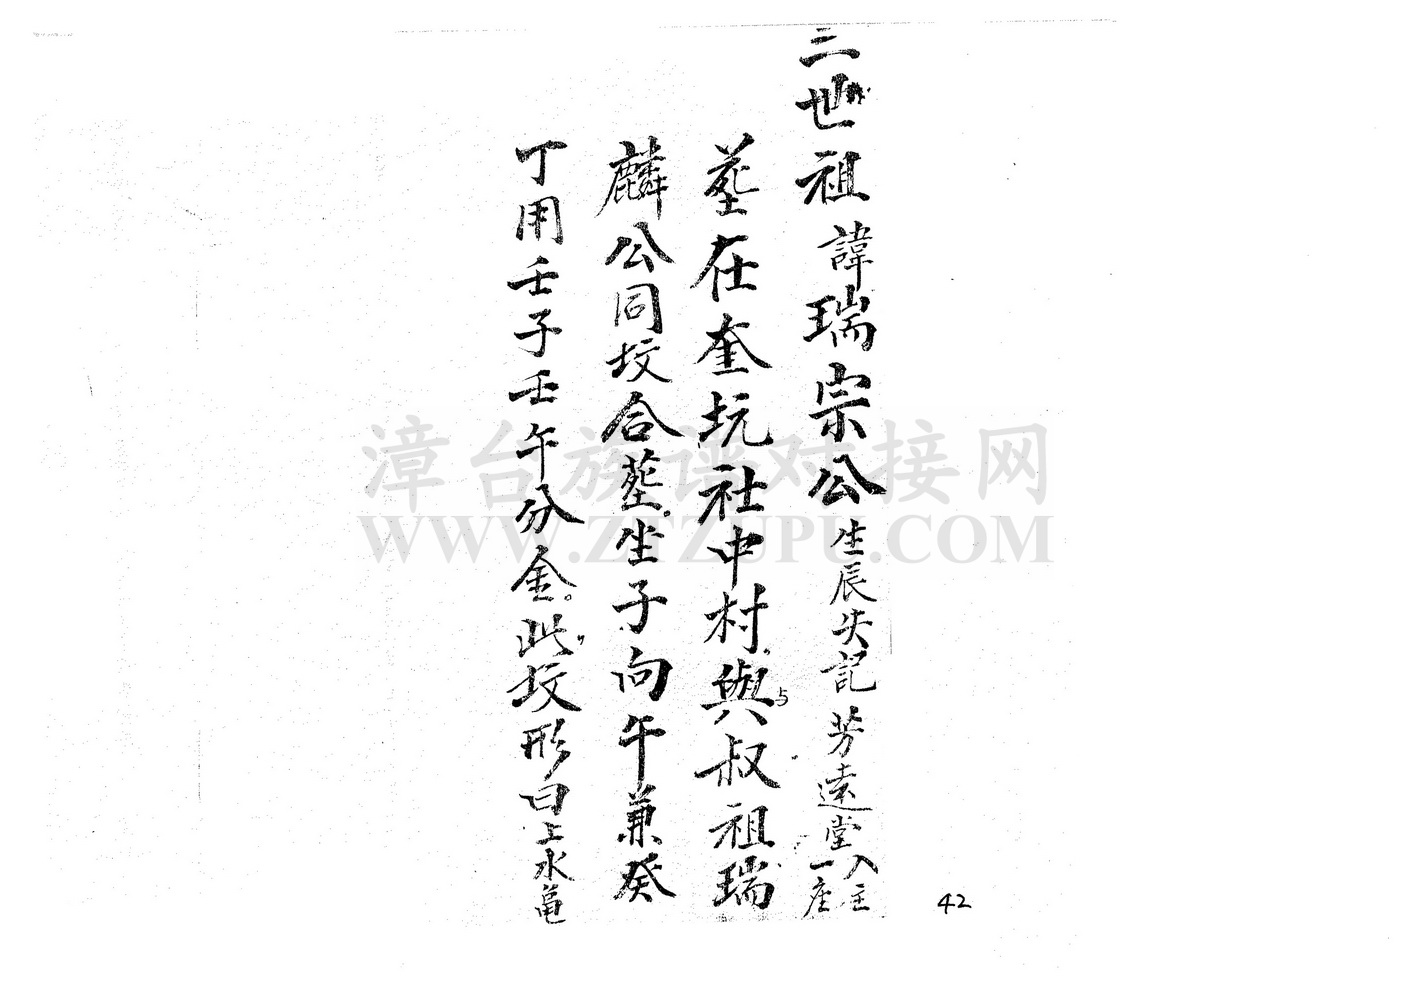 三世祖諱瑞宗公生辰失記芳遠堂入主一座
塟在奎坑社中村與与叔祖瑞
麟公同坟合塟。坐子向午兼癸
丁用壬子壬午分金。此坟形曰上水亀
42
漳台族谱对接网
WWW.ZTZUPU.COM